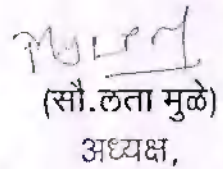 (सौ.लता मुळे)
अध्यक्ष,